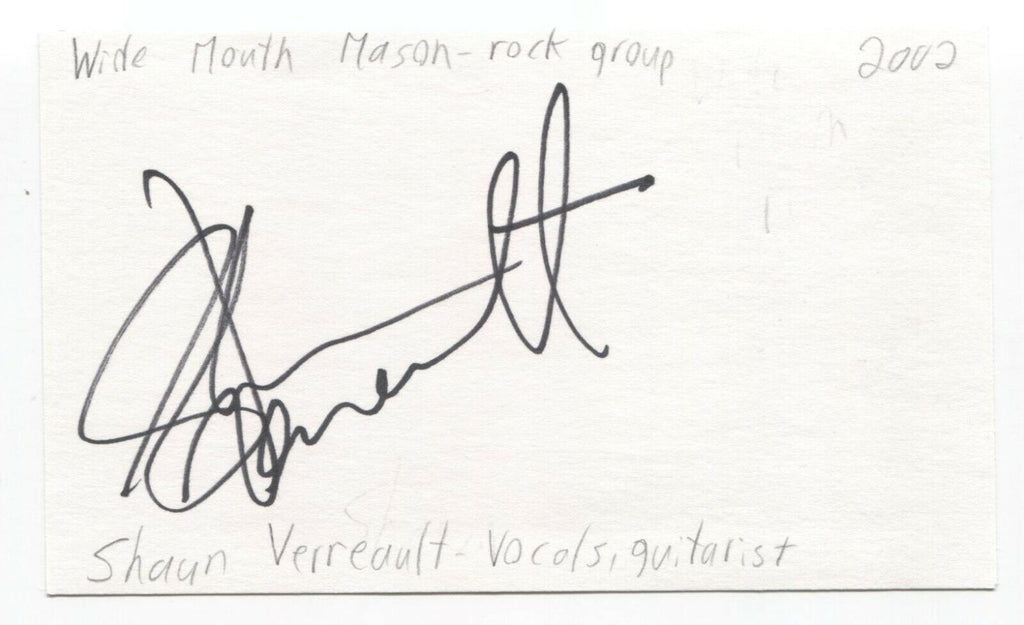 Wide Mouth Mason - rock group 2002
Shaun Verreault - Vocals, guitarist